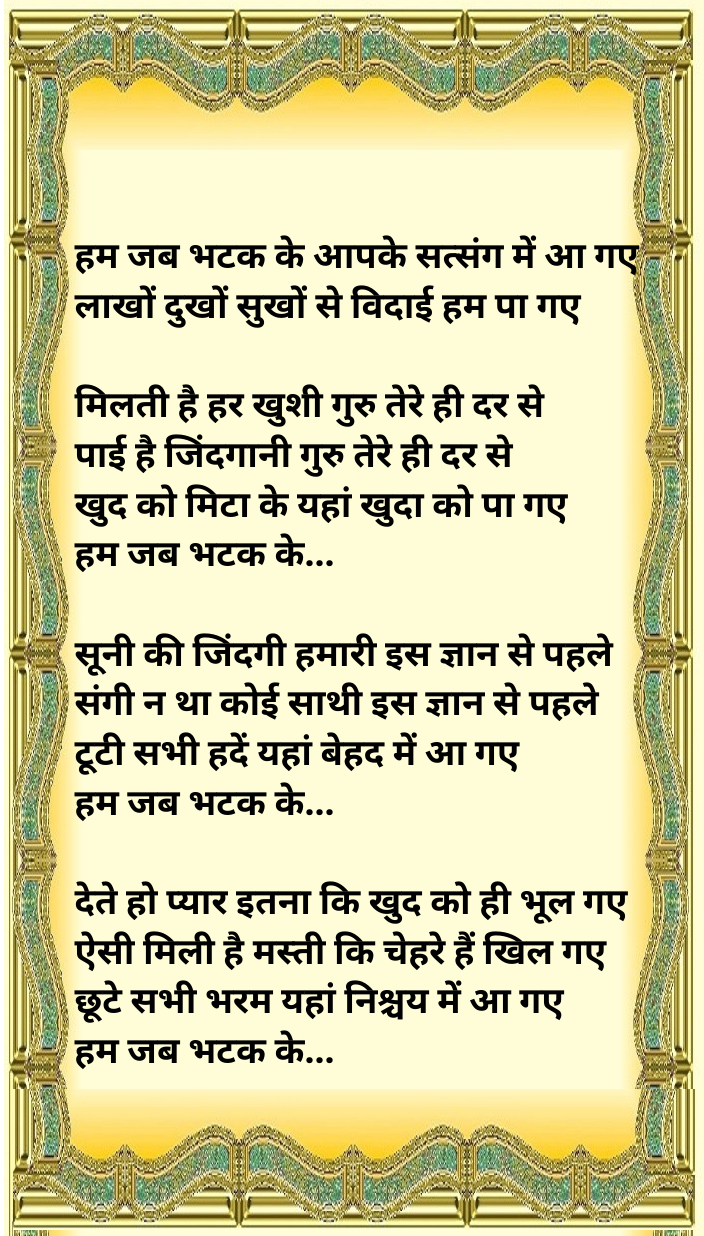 हम जब भटक के आपके सत्संग में आ गए
लाखों दुखों सुखों से विदाई हम पा गए
मिलती है हर खुशी गुरु तेरे ही दर से
पाई है जिंदगानी गुरु तेरे ही दर से
खुद को मिटा के यहां खुदा को पा गए
हम जब भटक के...
सूनी की जिंदगी हमारी इस ज्ञान से पहले
संगी न था कोई साथी इस ज्ञान से पहले
टूटी सभी हदें यहां बेहद में आ गए
हम जब भटक के...
देते हो प्यार इतना कि खुद को ही भूल गए
ऐसी मिली है मस्ती कि चेहरे हैं खिल गए
छूटे सभी भरम यहां निश्चय में आ गए
हम जब भटक के...